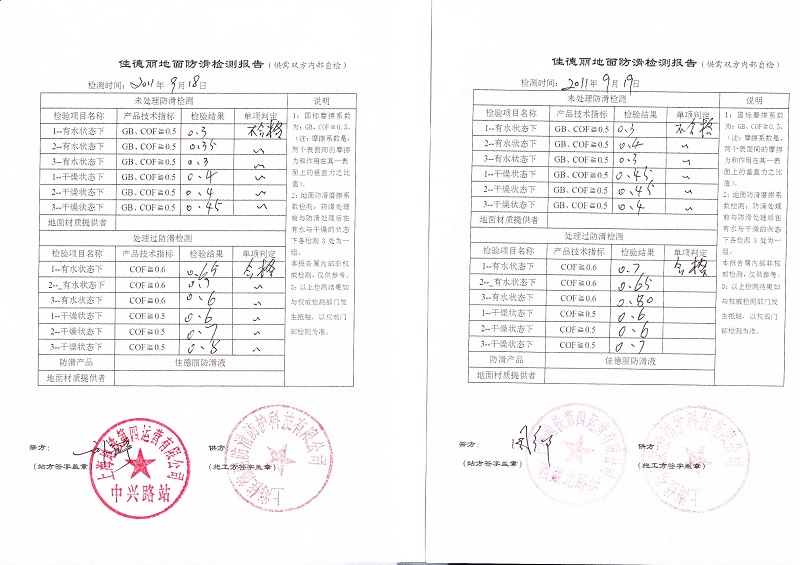 佳德丽地面防滑检测报告（供需双方内部自检）
检测时间：2011年9月18日
未处理防滑检测 说明
检验项目名称 产品技术指标 检验结果 单项判定
1--有水状态下 GB、COF≧0.5 0.3 不合格
2--有水状态下 GB、COF≧0.5 0.35 〃
3--有水状态下 GB、COF≧0.5 0.3 〃
1--干燥状态下 GB、COF≧0.5 0.4 〃
2--干燥状态下 GB、COF≧0.5 0.4 〃
3--干燥状态下 GB、COF≧0.5 0.45 〃
地面材质提供者
处理过防滑检测
检验项目名称 产品技术指标 检验结果 单项判定
1--有水状态下 COF≧0.6 0.65 合格
2--有水状态下 COF≧0.6 0.7 〃
3--有水状态下 COF≧0.6 0.6 〃
1--干燥状态下 COF≧0.5 0.6 〃
2--干燥状态下 COF≧0.5 0.7 〃
3--干燥状态下 COF≧0.5 0.8 〃
防滑产品 佳德丽防滑液
地面材质提供者
1：国标摩擦系数
为：GB、COF≧0.5、
（注：摩擦系数是，
两个表面间的摩擦
力和作用在其一表
面上的垂直力之比
值）。
2：地面防滑摩擦系
数检测：防滑处理
前与防滑处理后在
有水与干燥的状态
下各检测3处为一
组。
本报告属内部非权
威检测，仅供参考。
3：以上检测结果如
与权威检测部门发
生抵触，以权威门
部检测为准。
需方：
（站方签字盖章）
第四运营有限公司
中兴路站
供方：
（施工方签字盖章）
防滑防护科技有限公司
佳德丽地面防滑检测报告（供需双方内部自检）
检测时间：2011年9月19日
未处理防滑检测 说明
检验项目名称 产品技术指标 检验结果 单项判定
1--有水状态下 GB、COF≧0.5 0.3 不合格
2--有水状态下 GB、COF≧0.5 0.4 〃
3--有水状态下 GB、COF≧0.5 0.3 〃
1--干燥状态下 GB、COF≧0.5 0.45 〃
2--干燥状态下 GB、COF≧0.5 0.45 〃
3--干燥状态下 GB、COF≧0.5 0.4 〃
地面材质提供者
处理过防滑检测
检验项目名称 产品技术指标 检验结果 单项判定
1--有水状态下 COF≧0.6 0.7 合格
2--有水状态下 COF≧0.6 0.65
3--有水状态下 COF≧0.6 0.80
1--干燥状态下 COF≧0.5 0.6
2--干燥状态下 COF≧0.5 0.6
3--干燥状态下 COF≧0.5 0.7
防滑产品 佳德丽防滑液
地面材质提供者
1：国标摩擦系数
为：GB、COF≧0.5、
（注：摩擦系数是，
两个表面间的摩擦
力和作用在其一表
面上的垂直力之比
值）。
2：地面防滑摩擦系
数检测：防滑处理
前与防滑处理后在
有水与干燥的状态
下各检测3处为一
组。
本报告属内部非权
威检测，仅供参考。
3：以上检测结果如
与权威检测部门发
生抵触，以权威门
部检测为准。
需方：
（站方签字盖章）
供方：
（施工方签字盖章）